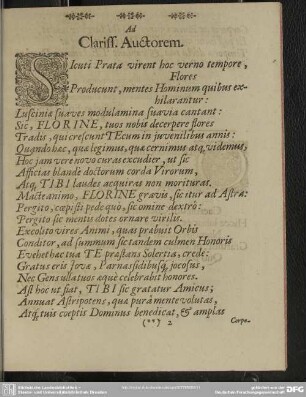 Ad
Clariss. Auctorem.
SIcuti Prata virent hoc verno tempore,
Flores
Producunt, mentes Hominum quibus ex-
hilarantur:
Luscinia suaves modulamina suavia cantant:
Sic, FLORINE, tuos nobis decerpere flores
Tradis, qui crescunt TEcum in juvenilibus annis:
Quandohac, qua legimus, qua cernimus atq; videmus,
Hoc jam vere novo curas excudier, ut sic
Afficias blandè doctorum corda Virorum,
Atq; TIBI laudes acquiras non morituras.
Macte animo, FLORINE gravis, sic itur ad Astra:
Pergito, cœpisti pede quo, sic omine dextrô:
Pergito sic mentis dotes ornare virilis.
Excolito vires Animi, quas prabuit Orbis
Conditor, ad summum sic tandem culmen Honoris
Evehet hac tua TE prastans Solertia, crede:
Gratus eris Jovæ, Parnassidibusq; jocosus,
Nec Gens ullatuos aquè celebrabit honores.
Ast hoc ut fiat, TIBI sic gratatur Amicus;
Annuat Astripotens, qua purâ mente volutas,
Atq; tuis cœptis Dominus benedicat, & amplas
(**) 2
Carpe.